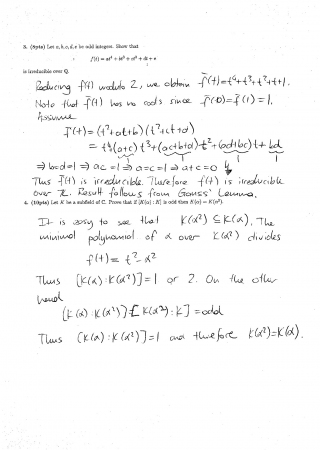 3. (8pts) Let a, b, c, d, e be odd integers. Show that
f(t) = at⁴ + bt³ + ct² + dt + e
is irreducible over Q.
Reducing f(t) modulo 2, we obtain f̄(t)=t⁴+t³+t²+t+1.
Note that f̄(t) has no roots since f̄(0)=f̄(1)=1.
Assume
f̄(t)=(t²+at+b)(t²+ct+d)
= t⁴+(a+c)t³+(ac+b+d)t²+(ad+bc)t+bd
1 1 1 1
⇒ b=d=1 ⇒ ac=1 ⇒ a=c=1 ⇒ a+c=0 ↯
Thus f̄(t) is irreducible. Therefore f(t) is irreducible
over Z. Result follows from Gauss' Lemma.
4. (10pts) Let K be a subfield of C. Prove that if [K(α) : K] is odd then K(α) = K(α²).
It is easy to see that K(α²) ⊆ K(α). The
minimal polynomial of α over K(α²) divides
f(t) = t²-α²
Thus [K(α):K(α²)]=1 or 2. On the other
hand
[K(α):K(α²)][K(α²):K] = odd
Thus [K(α):K(α²)]=1 and therefore K(α²)=K(α).